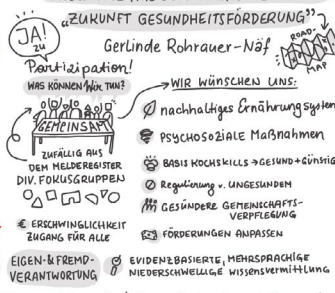 „ZUKUNFT GESUNDHEITSFÖRDERUNG"
JA!
zu
Partizipation!
Gerlinde Rohrauer-Näf
ROAD-
MAP
WAS KÖNNEN Wir TUN?
GEMEINSAM
ZUFÄLLIG AUS
DEM MELDEREGISTER
DIV. FOKUSGRUPPEN
€ ERSCHWINGLICHKEIT
ZUGANG FÜR ALLE
EIGEN-&FREMD-
VERANTWORTUNG
WIR WÜNSCHEN UNS:
nachhaltiges Ernährungssystem
PSYCHOSOZIALE MAẞNAHMEN
BASIS KOCHSKILLS → GESUND + GÜNSTIG
Regulierung v. UNGESUNDEM
GESÜNDERE GEMEINSCHAFTS-
VERPFLEGUNG
FÖRDERUNGEN ANPASSEN
EVIDENZBASIERTE, MEHRSPRACHIGE
NIEDERSCHWELLIGE WISSENSVERMITTLUNG